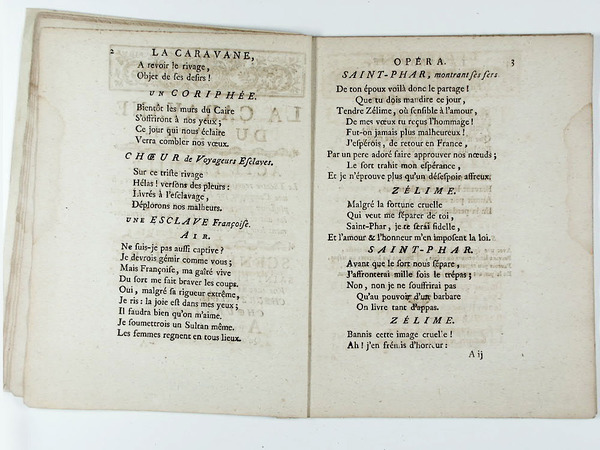 2 LA CARAVANE,
A revoir le rivage,
Objet de ſes deſirs !
UN CORIPHÉE.
Bientôt les murs du Caire
S'offriront à nos yeux ;
Ce jour qui nous éclaire
Verra combler nos vœux.
CHŒUR de Voyageurs Eſclaves.
Sur ce triſte rivage
Hélas ! verſons des pleurs :
Livrés à l'eſclavage,
Déplorons nos malheurs.
UNE ESCLAVE Françoiſe.
AIR.
Ne ſuis-je pas auſſi captive ?
Je devrois gémir comme vous ;
Mais Françoiſe, ma gaîté vive
Du ſort me fait braver les coups.
Oui, malgré ſa rigueur extrême,
Je ris : la joie eſt dans mes yeux ;
Il faudra bien qu'on m'aime.
Je ſoumettrois un Sultan même.
Les femmes regnent en tous lieux.
OPÉRA. 3
SAINT-PHAR, montrant ſes fers
De ton époux voilà donc le partage !
Que tu dois maudire ce jour,
Tendre Zélime, où ſenſible à l'amour,
De mes vœux tu reçus l'hommage !
Fut-on jamais plus malheureux !
J'eſpérois, de retour en France,
Par un pere adoré faire approuver nos nœuds ;
Le ſort trahit mon eſpérance,
Et je n'éprouve plus qu'un déſeſpoir affreux.
ZÉLIME.
Malgré la fortune cruelle
Qui veut me ſéparer de toi,
Saint-Phar, je te ſerai fidelle,
Et l'amour & l'honneur m'en impoſent la loi.
SAINT-PHAR.
Avant que le ſort nous ſépare,
J'affronterai mille fois le trépas ;
Non, non je ne ſouffrirai pas
Qu'au pouvoir d'un barbare
On livre tant d'appas.
ZÉLIME.
Bannis cette image cruelle !
Ah ! j'en frémis d'horreur :
A ij